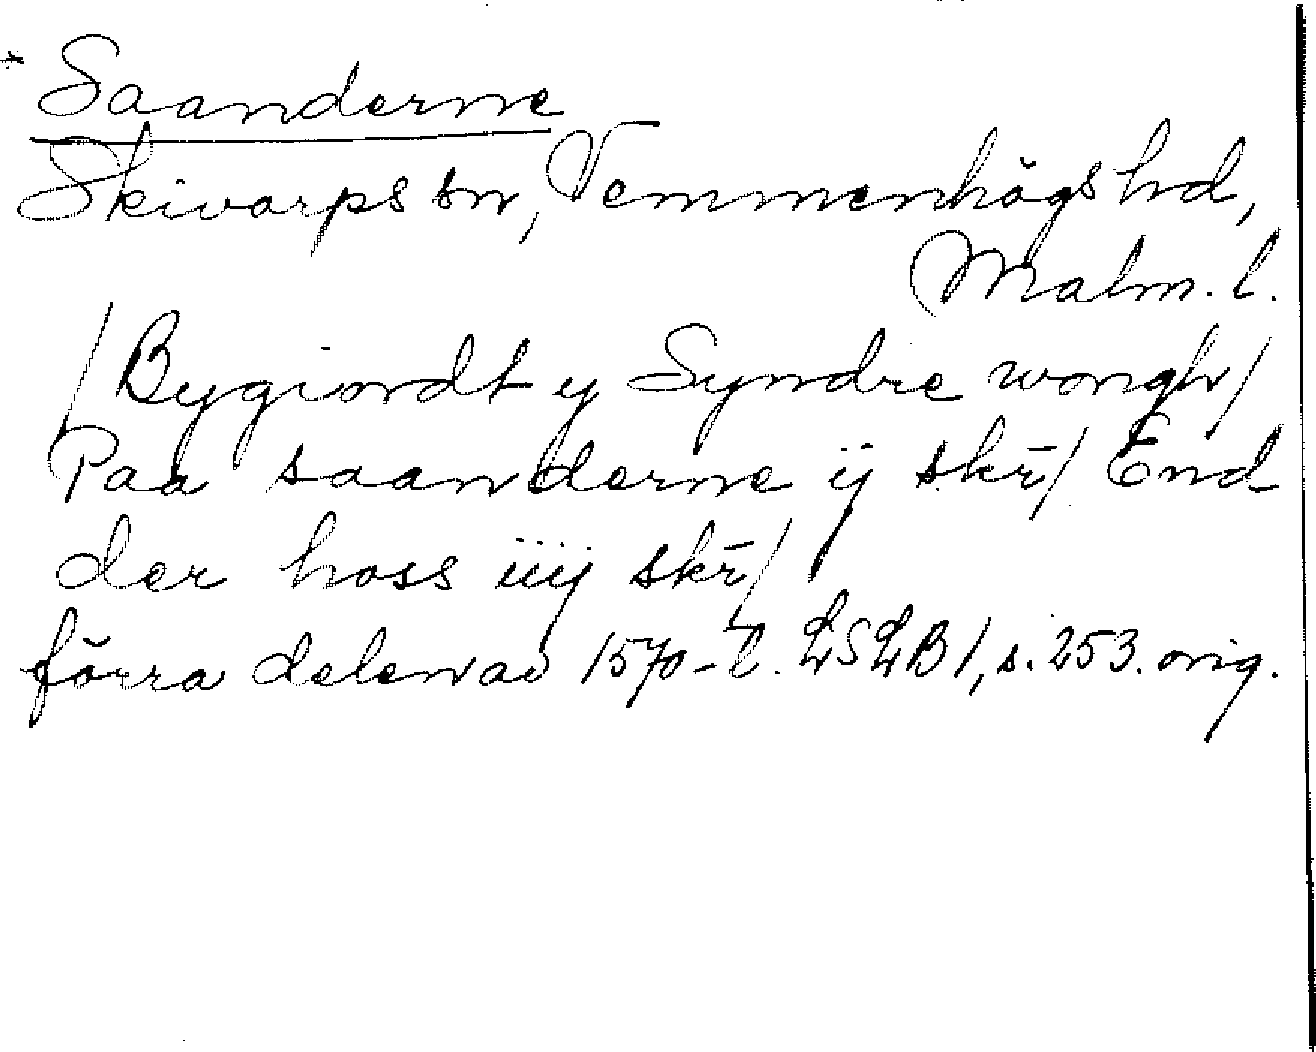 * Saanderne
Skivarps sn, Vemmenhögs hd,
Malm. l.
/Bygiordt ij Syndre wongh/
Paa saanderne ij skr̄/ End
der hoss iiij skr̄/
förra delen av 1570-t. LSLB 1, s. 253. orig.